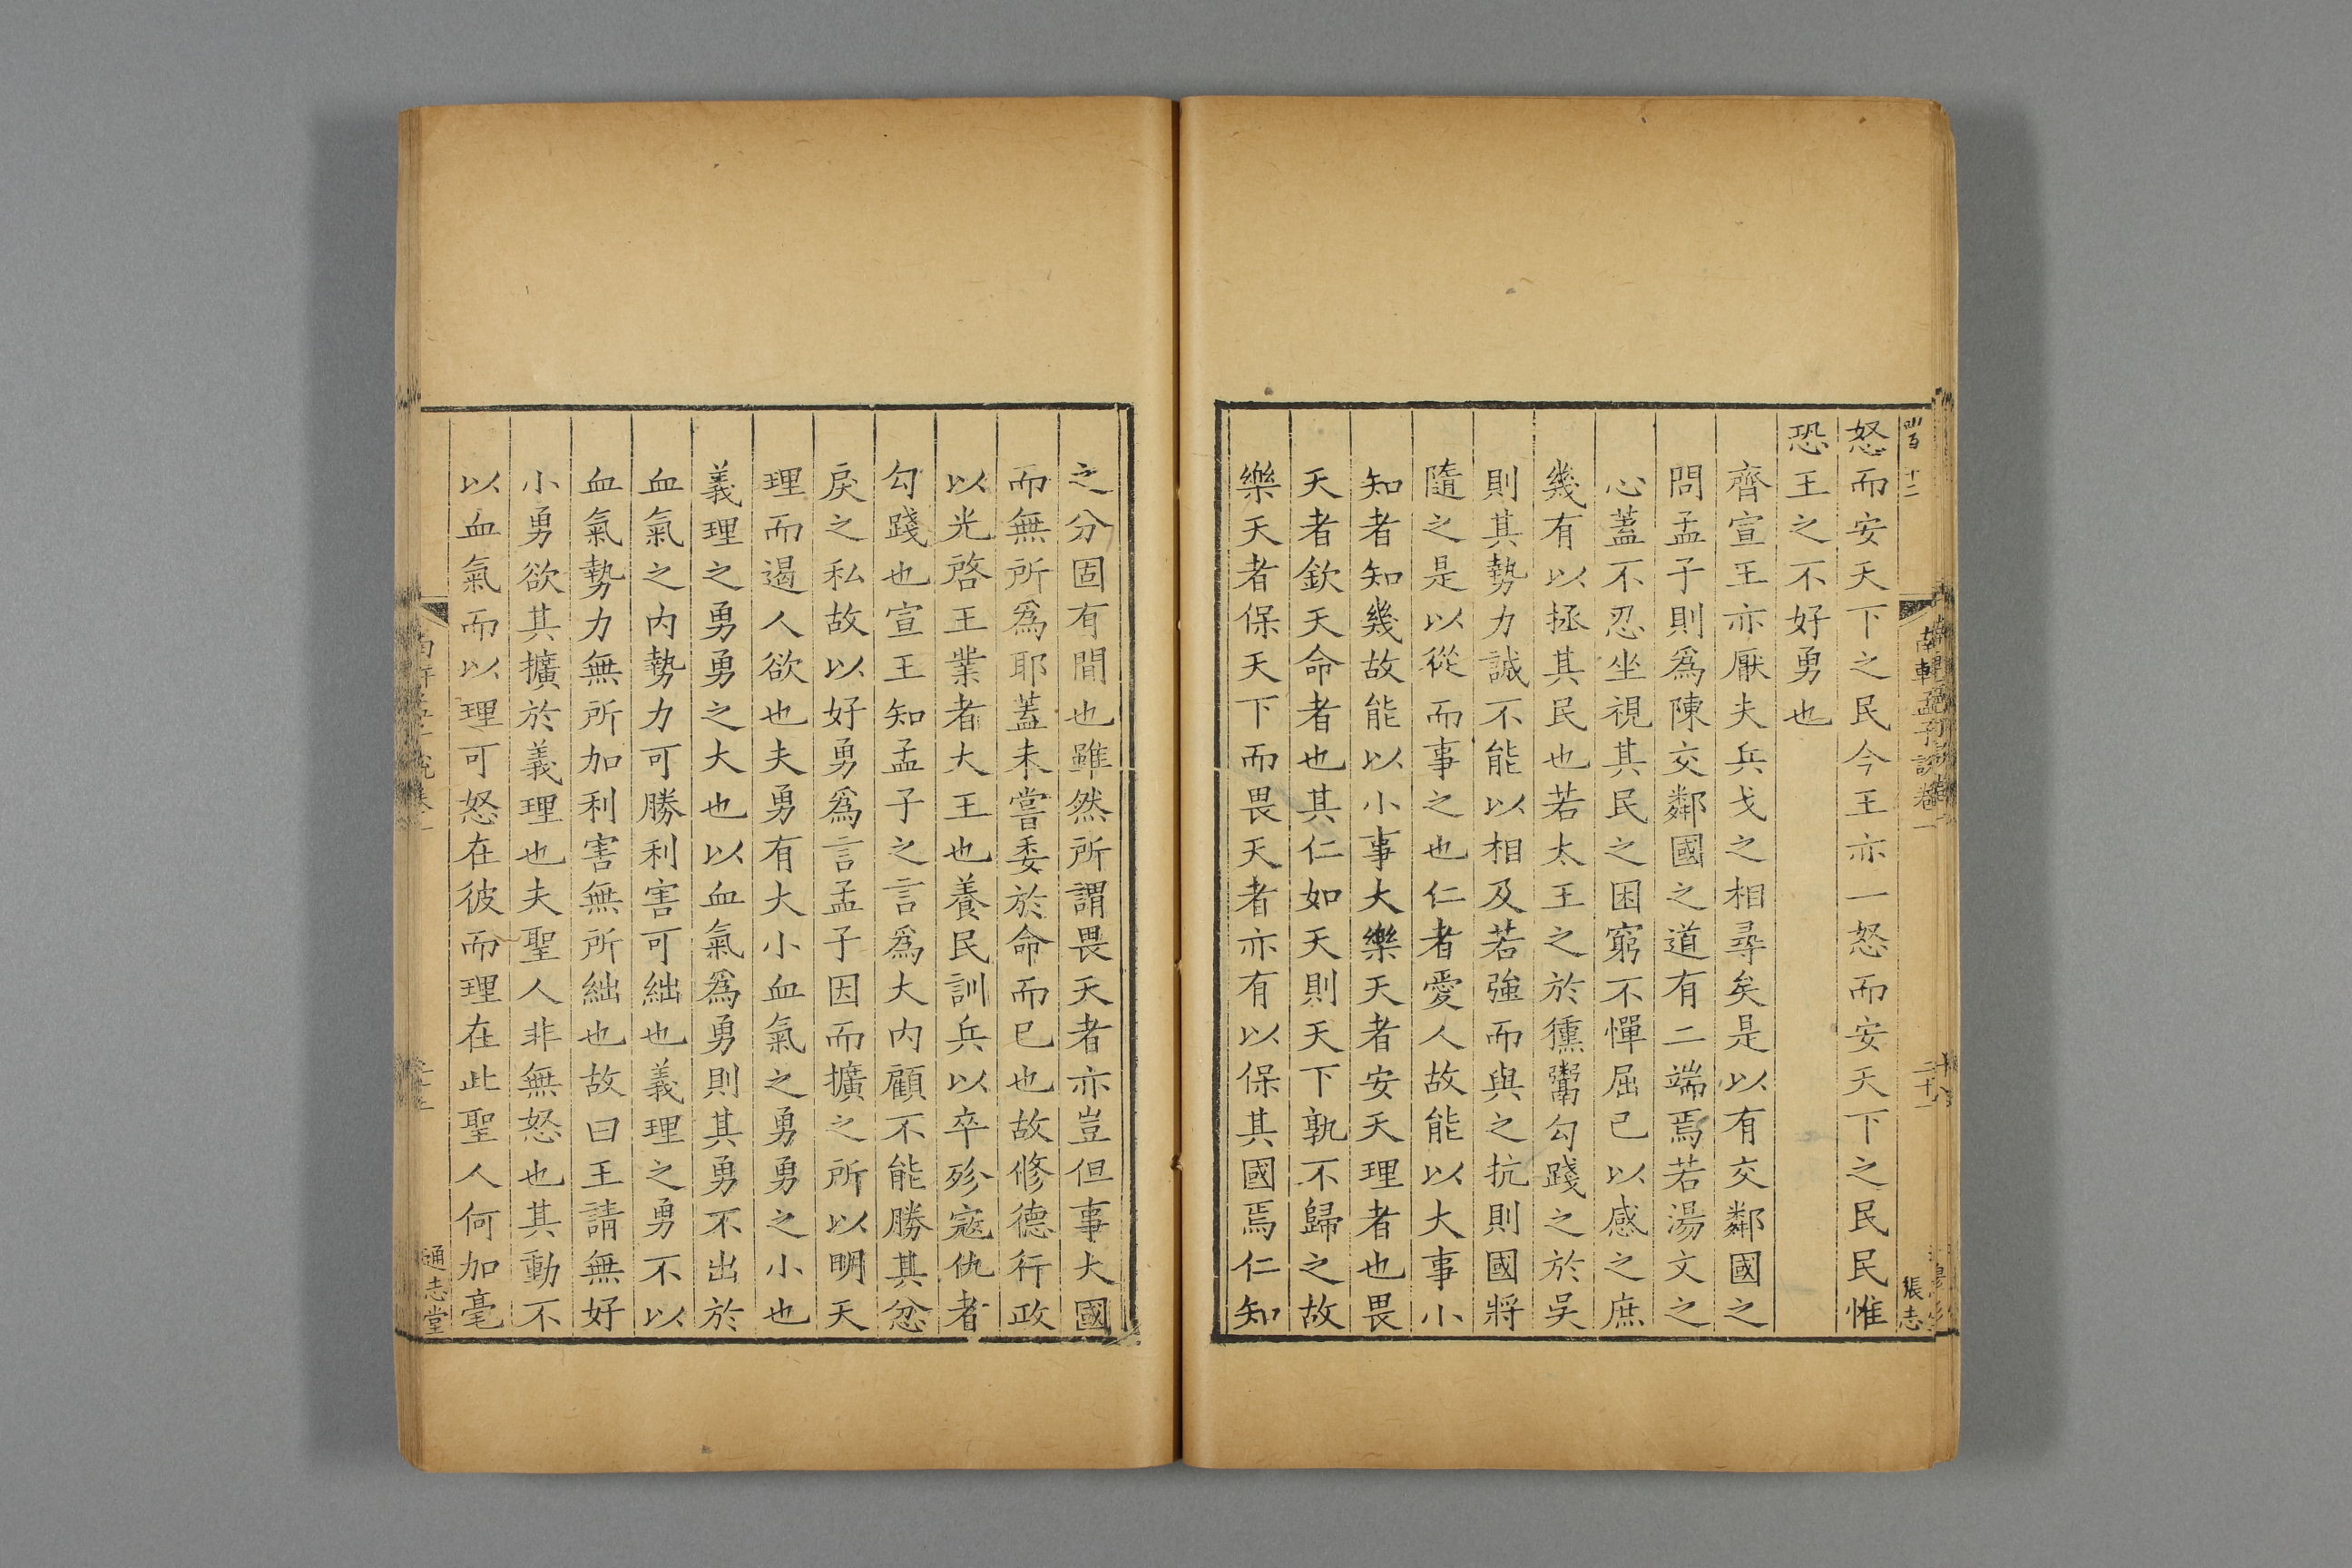 怒而安天下之民今王亦一怒而安天下之民民惟
恐王之不好勇也
齊宣王亦厭夫兵戈之相尋矣是以有交鄰國之
問孟子則爲陳交鄰國之道有二端焉若湯文之
心蓋不忍坐視其民之困窮不憚屈己以感之庶
幾有以拯其民也若太王之於獯鬻勾踐之於吳
則其勢力誠不能以相及若強而與之抗則國將
隨之是以從而事之也仁者愛人故能以大事小
知者知幾故能以小事大樂天者安天理者也畏
天者欽天命者也其仁如天則天下孰不歸之故
樂天者保天下而畏天者亦有以保其國焉仁知
之分固有間也雖然所謂畏天者亦豈但事大國
而無所爲耶蓋未嘗委於命而已也故修德行政
以光啓王業者大王也養民訓兵以卒殄寇仇者
勾踐也宣王知孟子之言爲大內顧不能勝其忿
戾之私故以好勇爲言孟子因而擴之所以明天
理而遏人欲也夫勇有大小血氣之勇勇之小也
義理之勇勇之大也以血氣爲勇則其勇不出於
血氣之內勢力可勝利害可絀也義理之勇不以
血氣勢力無所加利害無所絀也故曰王請無好
小勇欲其擴於義理也夫聖人非無怒也其動不
以血氣而以理可怒在彼而理在此聖人何加毫
通志堂